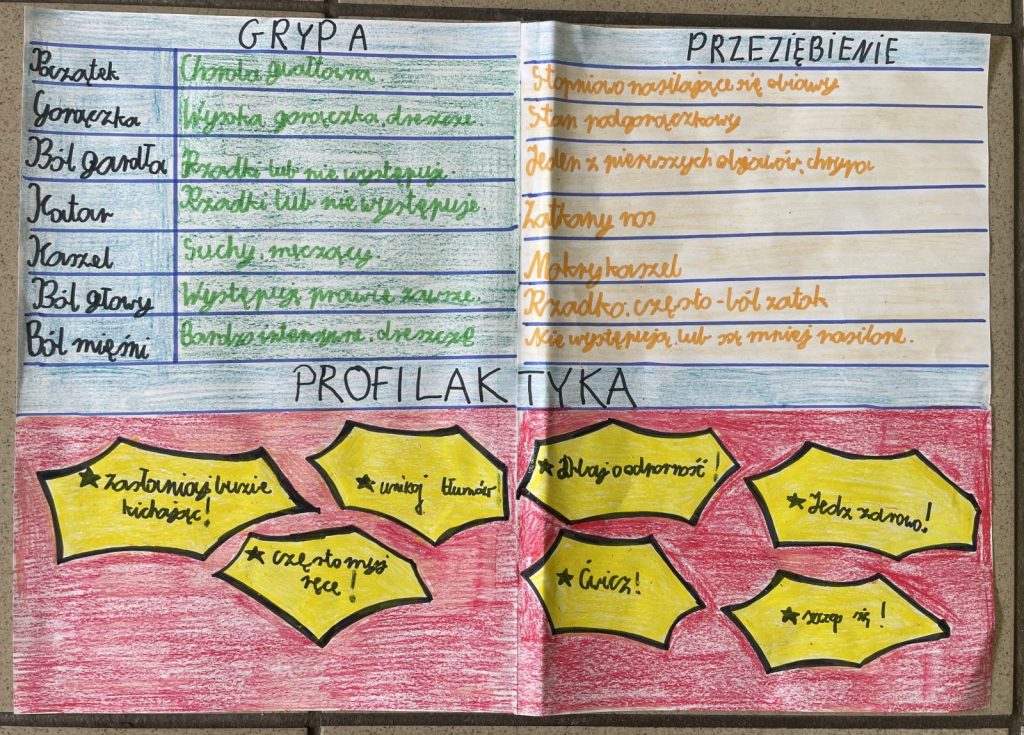 GRYPA
PRZEZIĘBIENIE
Początek
Choroba gwałtowna.
Stopniowo nasilające się obiawy
Gorączka
Wysoka gorączka, dreszcze.
Stan podgorączkowy
Ból gardła
Rzadki lub nie występuje.
Jeden z pierwszych objawów, chrypa
Katar
Rzadki lub nie występuje.
Zatkany nos
Kaszel
Suchy, męczący.
Mokry kaszel
Ból głowy
Występuje prawie zawsze.
Rzadko, często - ból zatok
Ból mięśni
Bardzo intensywne, dreszcze
Nie występują lub są mniej nasilone.
PROFILAKTYKA
★ Zasłaniaj buzie
kichając!
★ unikaj tłumów
★ Dbaj o odporność!
★ Jedz zdrowo!
★ często myj
ręce!
★ Ćwicz!
★ szczep się!